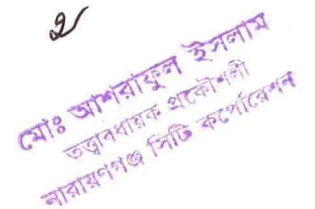 মোঃ আশরাফুল ইসলাম
তত্ত্বাবধায়ক প্রকৌশলী
নারায়ণগঞ্জ সিটি কর্পোরেশন